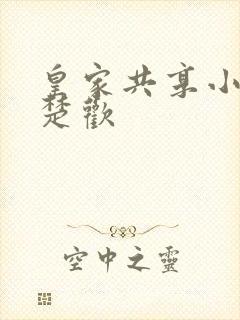 皇家共享小
楚歡
空中之靈